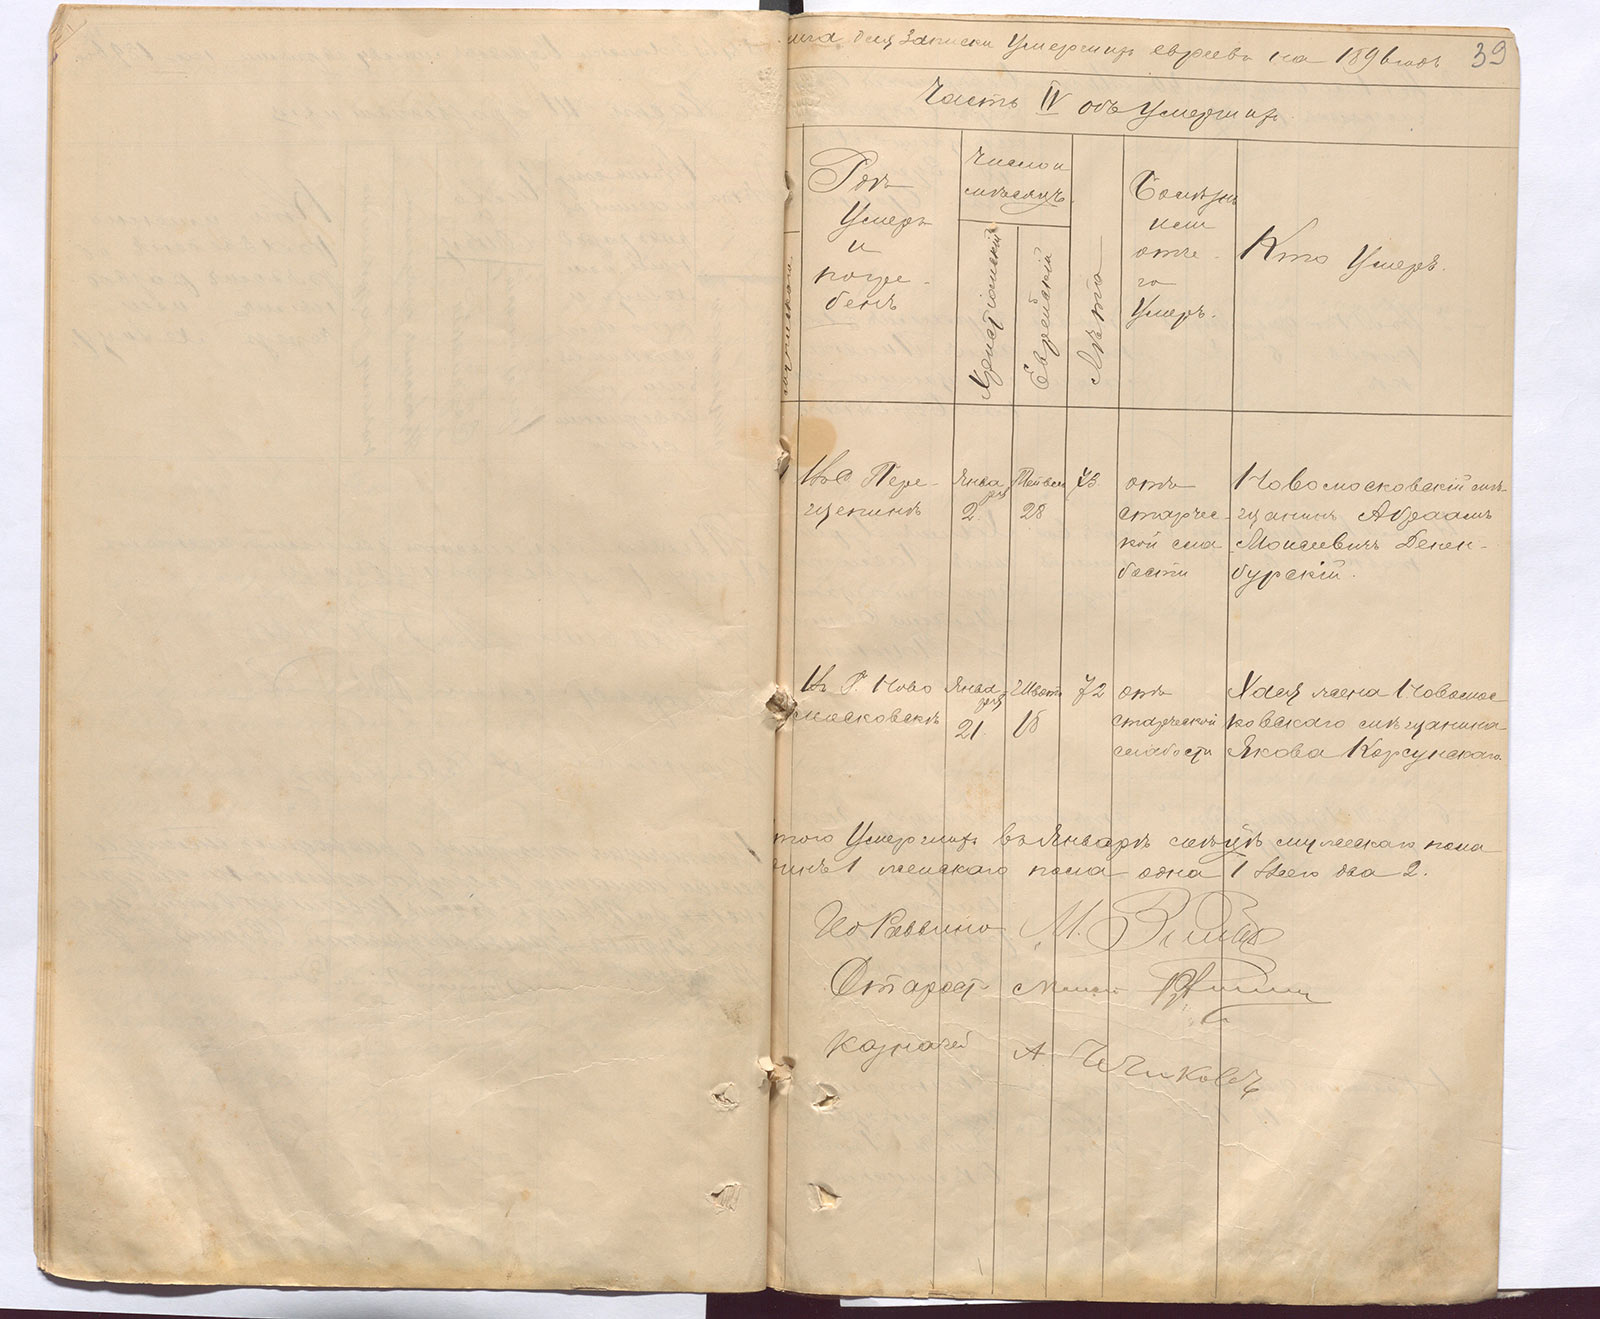 для Записки Умершихъ евреевъ на 1896 годъ 39
Часть IV объ Умершихъ
Гдѣ
Умеръ
и
погре-
бенъ
Число и
мѣсяцъ
Христіянскій
Еврейскій
Лѣта
Болѣзнь
или
отче-
го
Умеръ.
Кто Умеръ.
Въ С Пере-
щепинѣ
Янва
ря
2.
Тейвеи
28
73
отъ
старчес-
кой сла
бости
Новомосковскій мѣ-
щанинъ Абраамъ
Моисеевичъ Денен-
бурскій.
Въ Г. Ново
московскѣ
Янва
ря
21.
Шватъ
18
72
отъ
старческой
слабости
Хая жена Новомос
ковскаго мѣщанина
Якова Корсунскаго
того Умершихъ въ Январѣ мужескаго пола
1 женскаго пола одна 1 Всего два 2.
Ио Раввина М.
Старост
казначей А. Чечиковъ